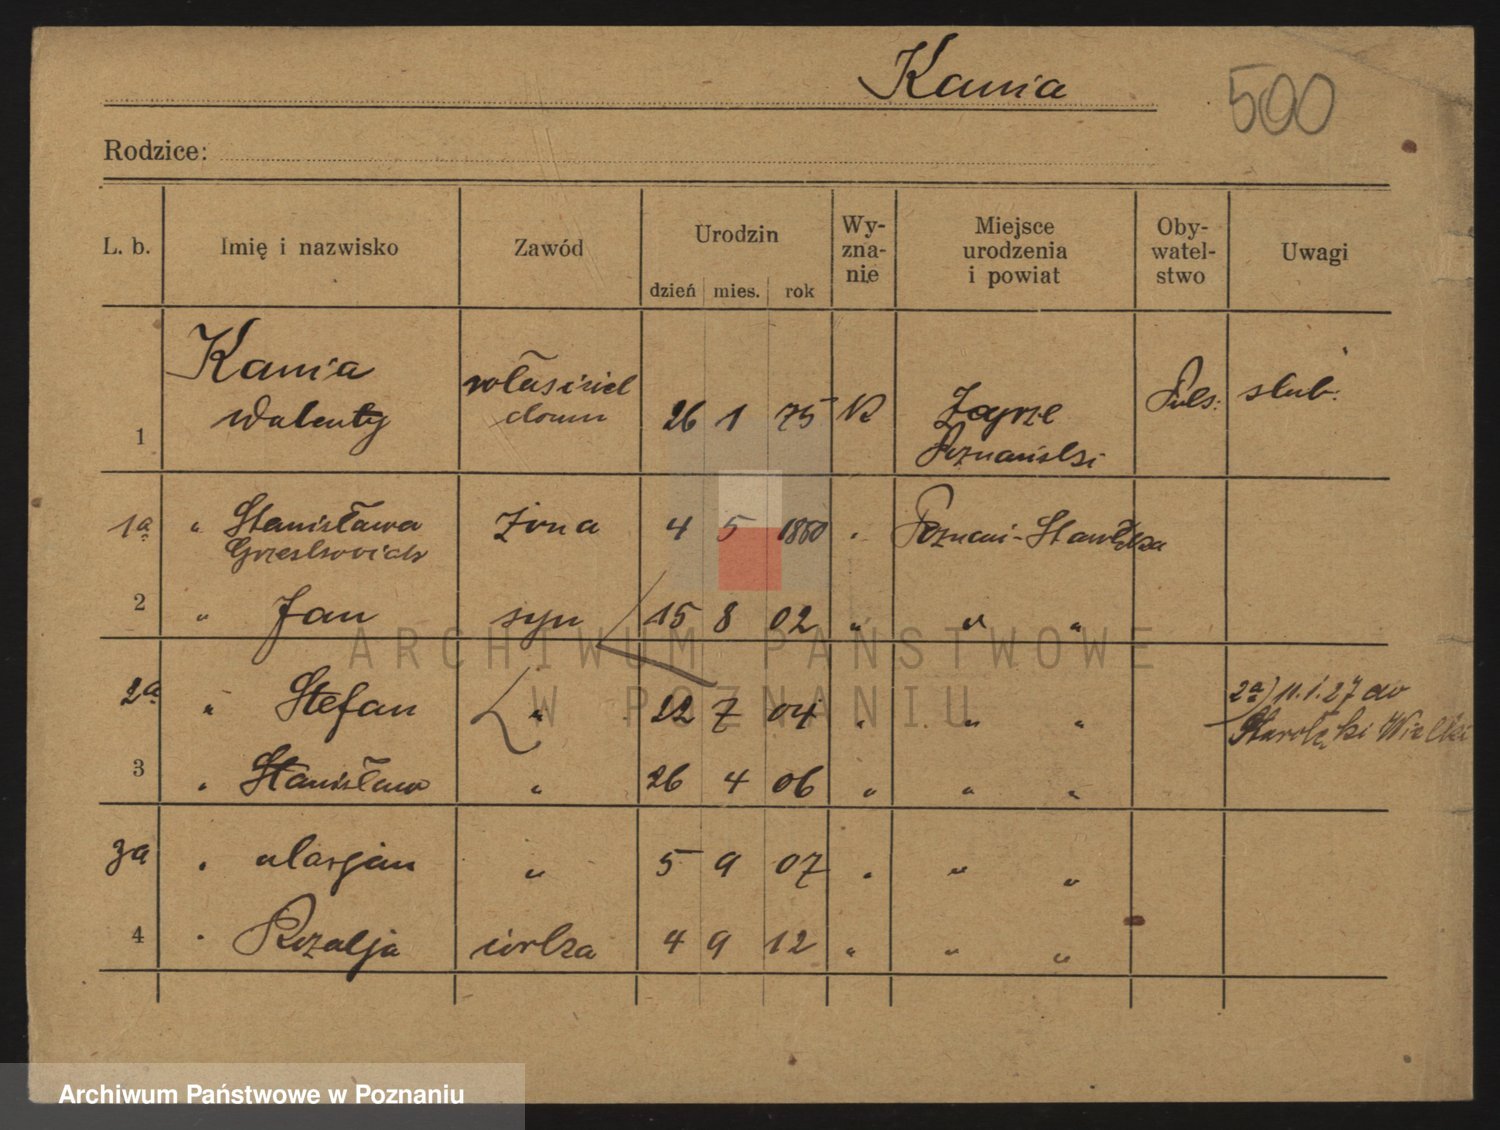 Kania
500
Rodzice:
L. b. Imię i nazwisko Zawód Urodzin Wy-zna-nie Miejsce urodzenia i powiat Oby-watel-stwo Uwagi
dzień mies. rok
1 Kania Walenty właściciel domu 26 1 75 Zegrze Poznański Pols: slub:
1a " Stanisława żona 4 5 Poznań-Starołęka
2 " Jan syn 15 8 02 " " "
2a " Stefan " 22 7 04 " " " 2a) 11.1.27 do Starołęki Wielki
3 " Stanisław " 26 4 06 " " "
3a " Marjan " 5 9 07 " " "
4 " Rozalja córka 4 9 12 " " "
ARCHIWUM PAŃSTWOWE
W POZNANIU
Archiwum Państwowe w Poznaniu